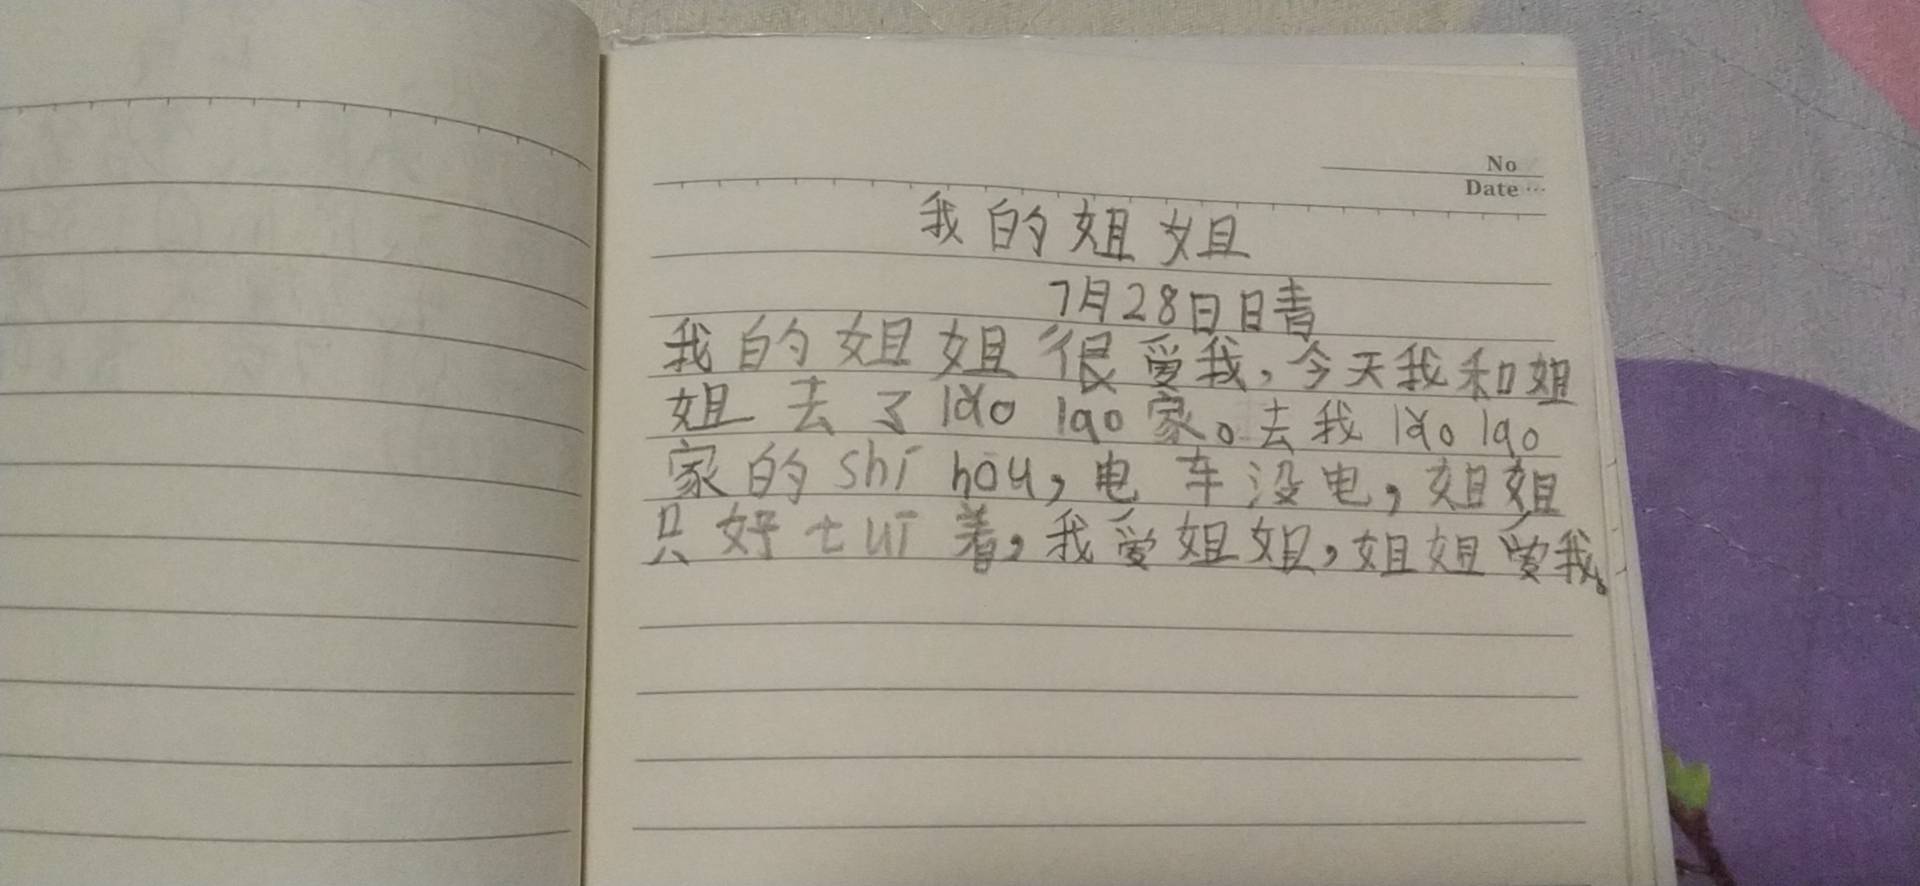 No
Date
我的姐姐
7月28日日青
我的姐姐很爱我，今天我和姐
姐去了lǎo lao家。去我lǎo lao
家的shí hòu，电车没电，姐姐
只好tuī着，我爱姐姐，姐姐爱我。